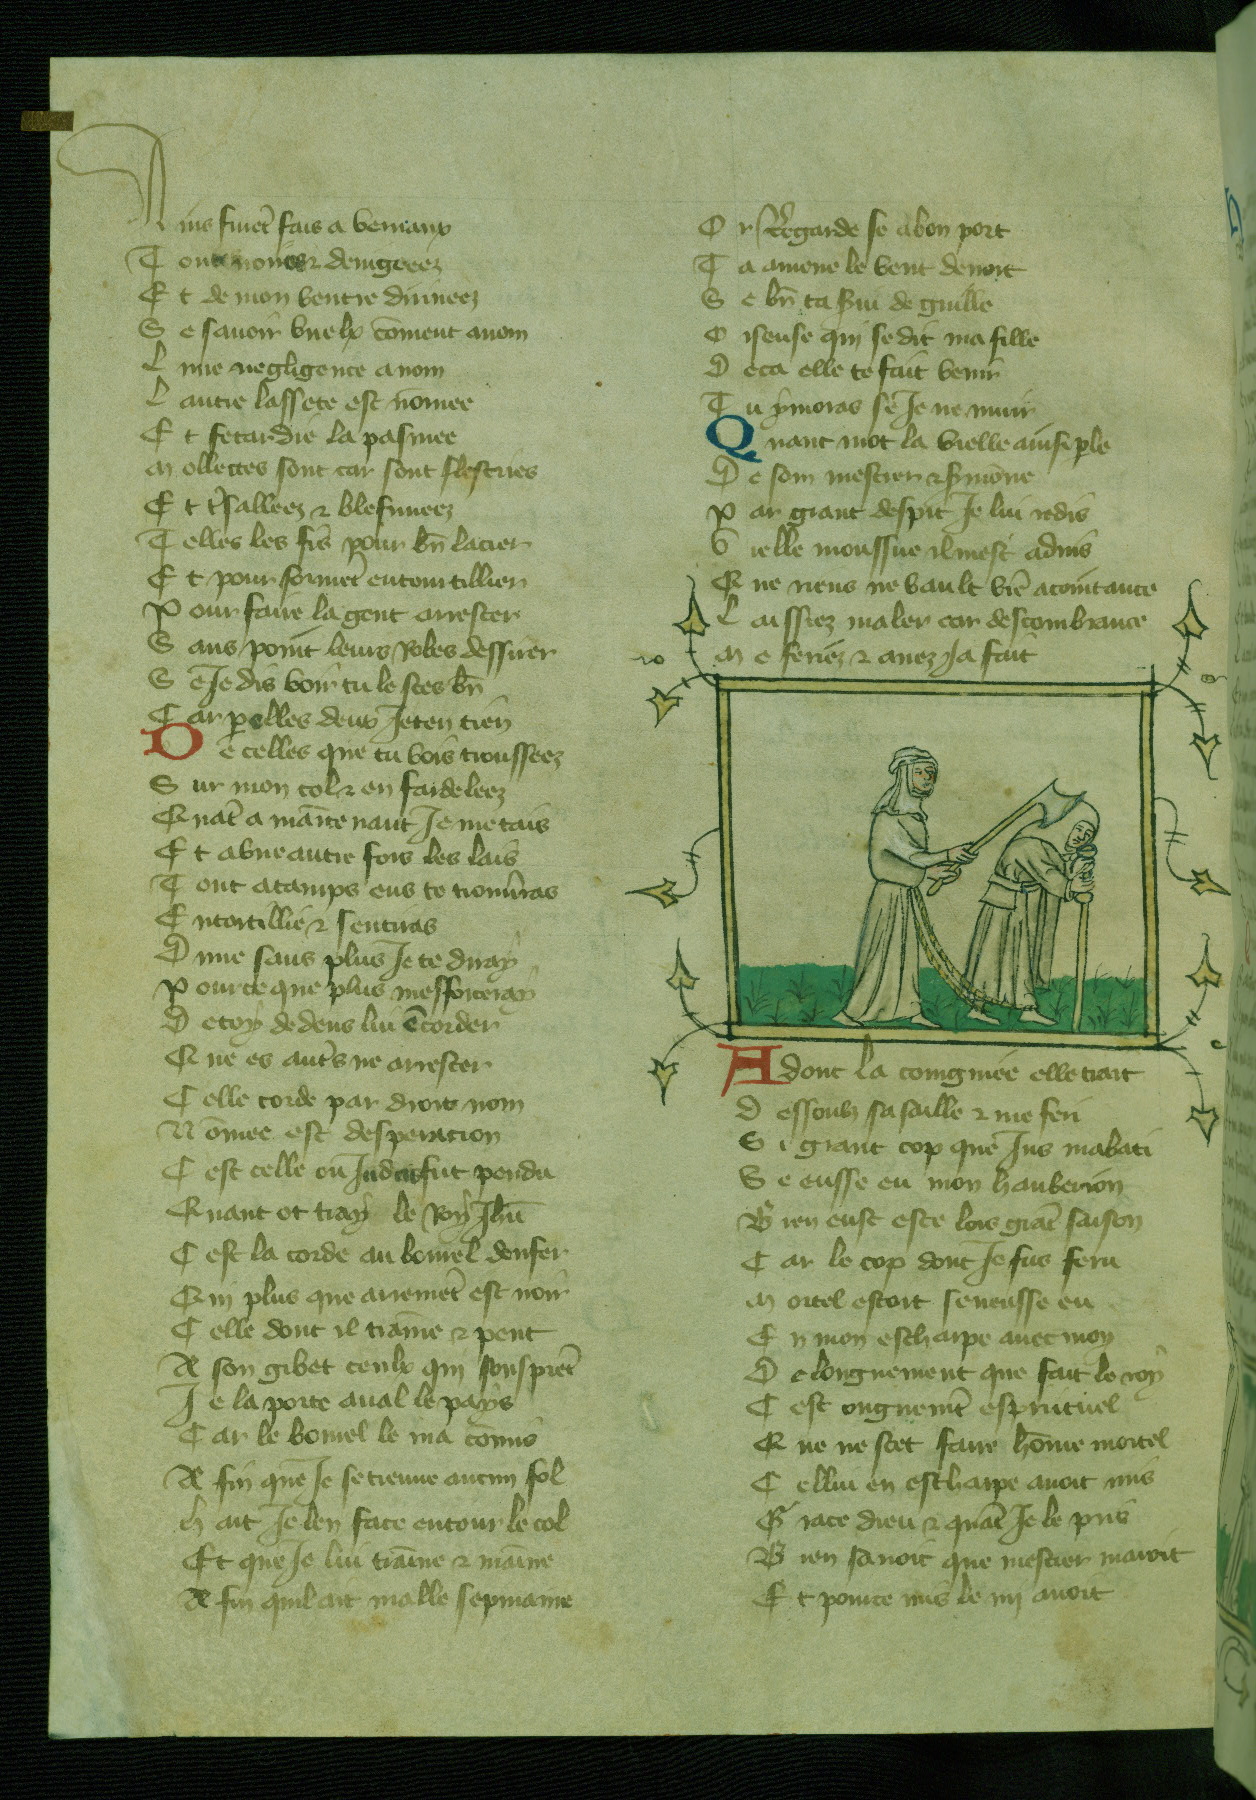 Ains furent fais a veniaux
Toutes noires & deugeez
Et de mon ventre divineez
Se savoir vuelx cōment a nom
Lune negligence a nom
Lautre lassete est nōmee
Et fetardie la pasmee
Mollettes sont car sont flestries
Et tsalleez & blesmieez
Telles les fis pour bn̄ lacier
Et pour formēt entourtillier
Pour faire la gent arrester
Sans point leurs robes dessirer
Se Je dis voir tu le sces bn̄
Car p elles deux Je ten tien
De celles que tu vois trousseez
Sur mon col & en fardeleez
Quāt a maītenant Je me tais
Et a une autre fois les lais
Tout a tamps ens te trouv̄as
Entortillie & sentiras
Dune sans plus Je te diray
Pource que plus mesforceray
De toy dedens lui ēcorder
Que es aut̄s ne arrester
Celle corde par droit nom
Nōmee est desperacion
Cest celle ou Judas fut pendu
Quant ot tray le Roy Jhū
Cest la corde au bourel denfer
Qui plus que arremēt est noir
Celle dont il traīne & pent
A son gibet ceulx qui sousprēt
Je la porte aval le pays
Car le bourel le ma cōmis
A fin que Je se treuve aucun fol
hait Je len face entour le col
Et que Je lui traīne & maīne
A fin quil ait malle sepmaine
Or Regarde se a bon port
Ta amene le vent de nort
Se bn̄ ta svi de guille
Oiseuse qui se dit ma fille
De ca elle te fait venir
Tu y moras se Je ne muir
Quant mot la vielle ainsi ple
De som mestier & smōne
Par grant despit Je lui redis
Vielle moussue il mest advis
Que riens ne vault vr̄e acointance
Laissiez maler car descombrance
Me feriez & avez Ja fait
Adont la coingniee elle trait
Dessoubz sa saille & me feri
Si grant cop que Jus mabati
Se eusse eu mon hauberion
Bien eust este lors grāt saison
Car le cop dont Je fus feru
Mortel estoit se neusse eu
En mon escharpe avec moy
De longnement que fait le roy
Cest ongnemēt esprituel
Que ne scet faire hōme mortel
Cellui en escharpe avoit mis
Grace dieu & quāt Je le pris
Bien savoit que mestier mavoit
Et pource mis le my avoit